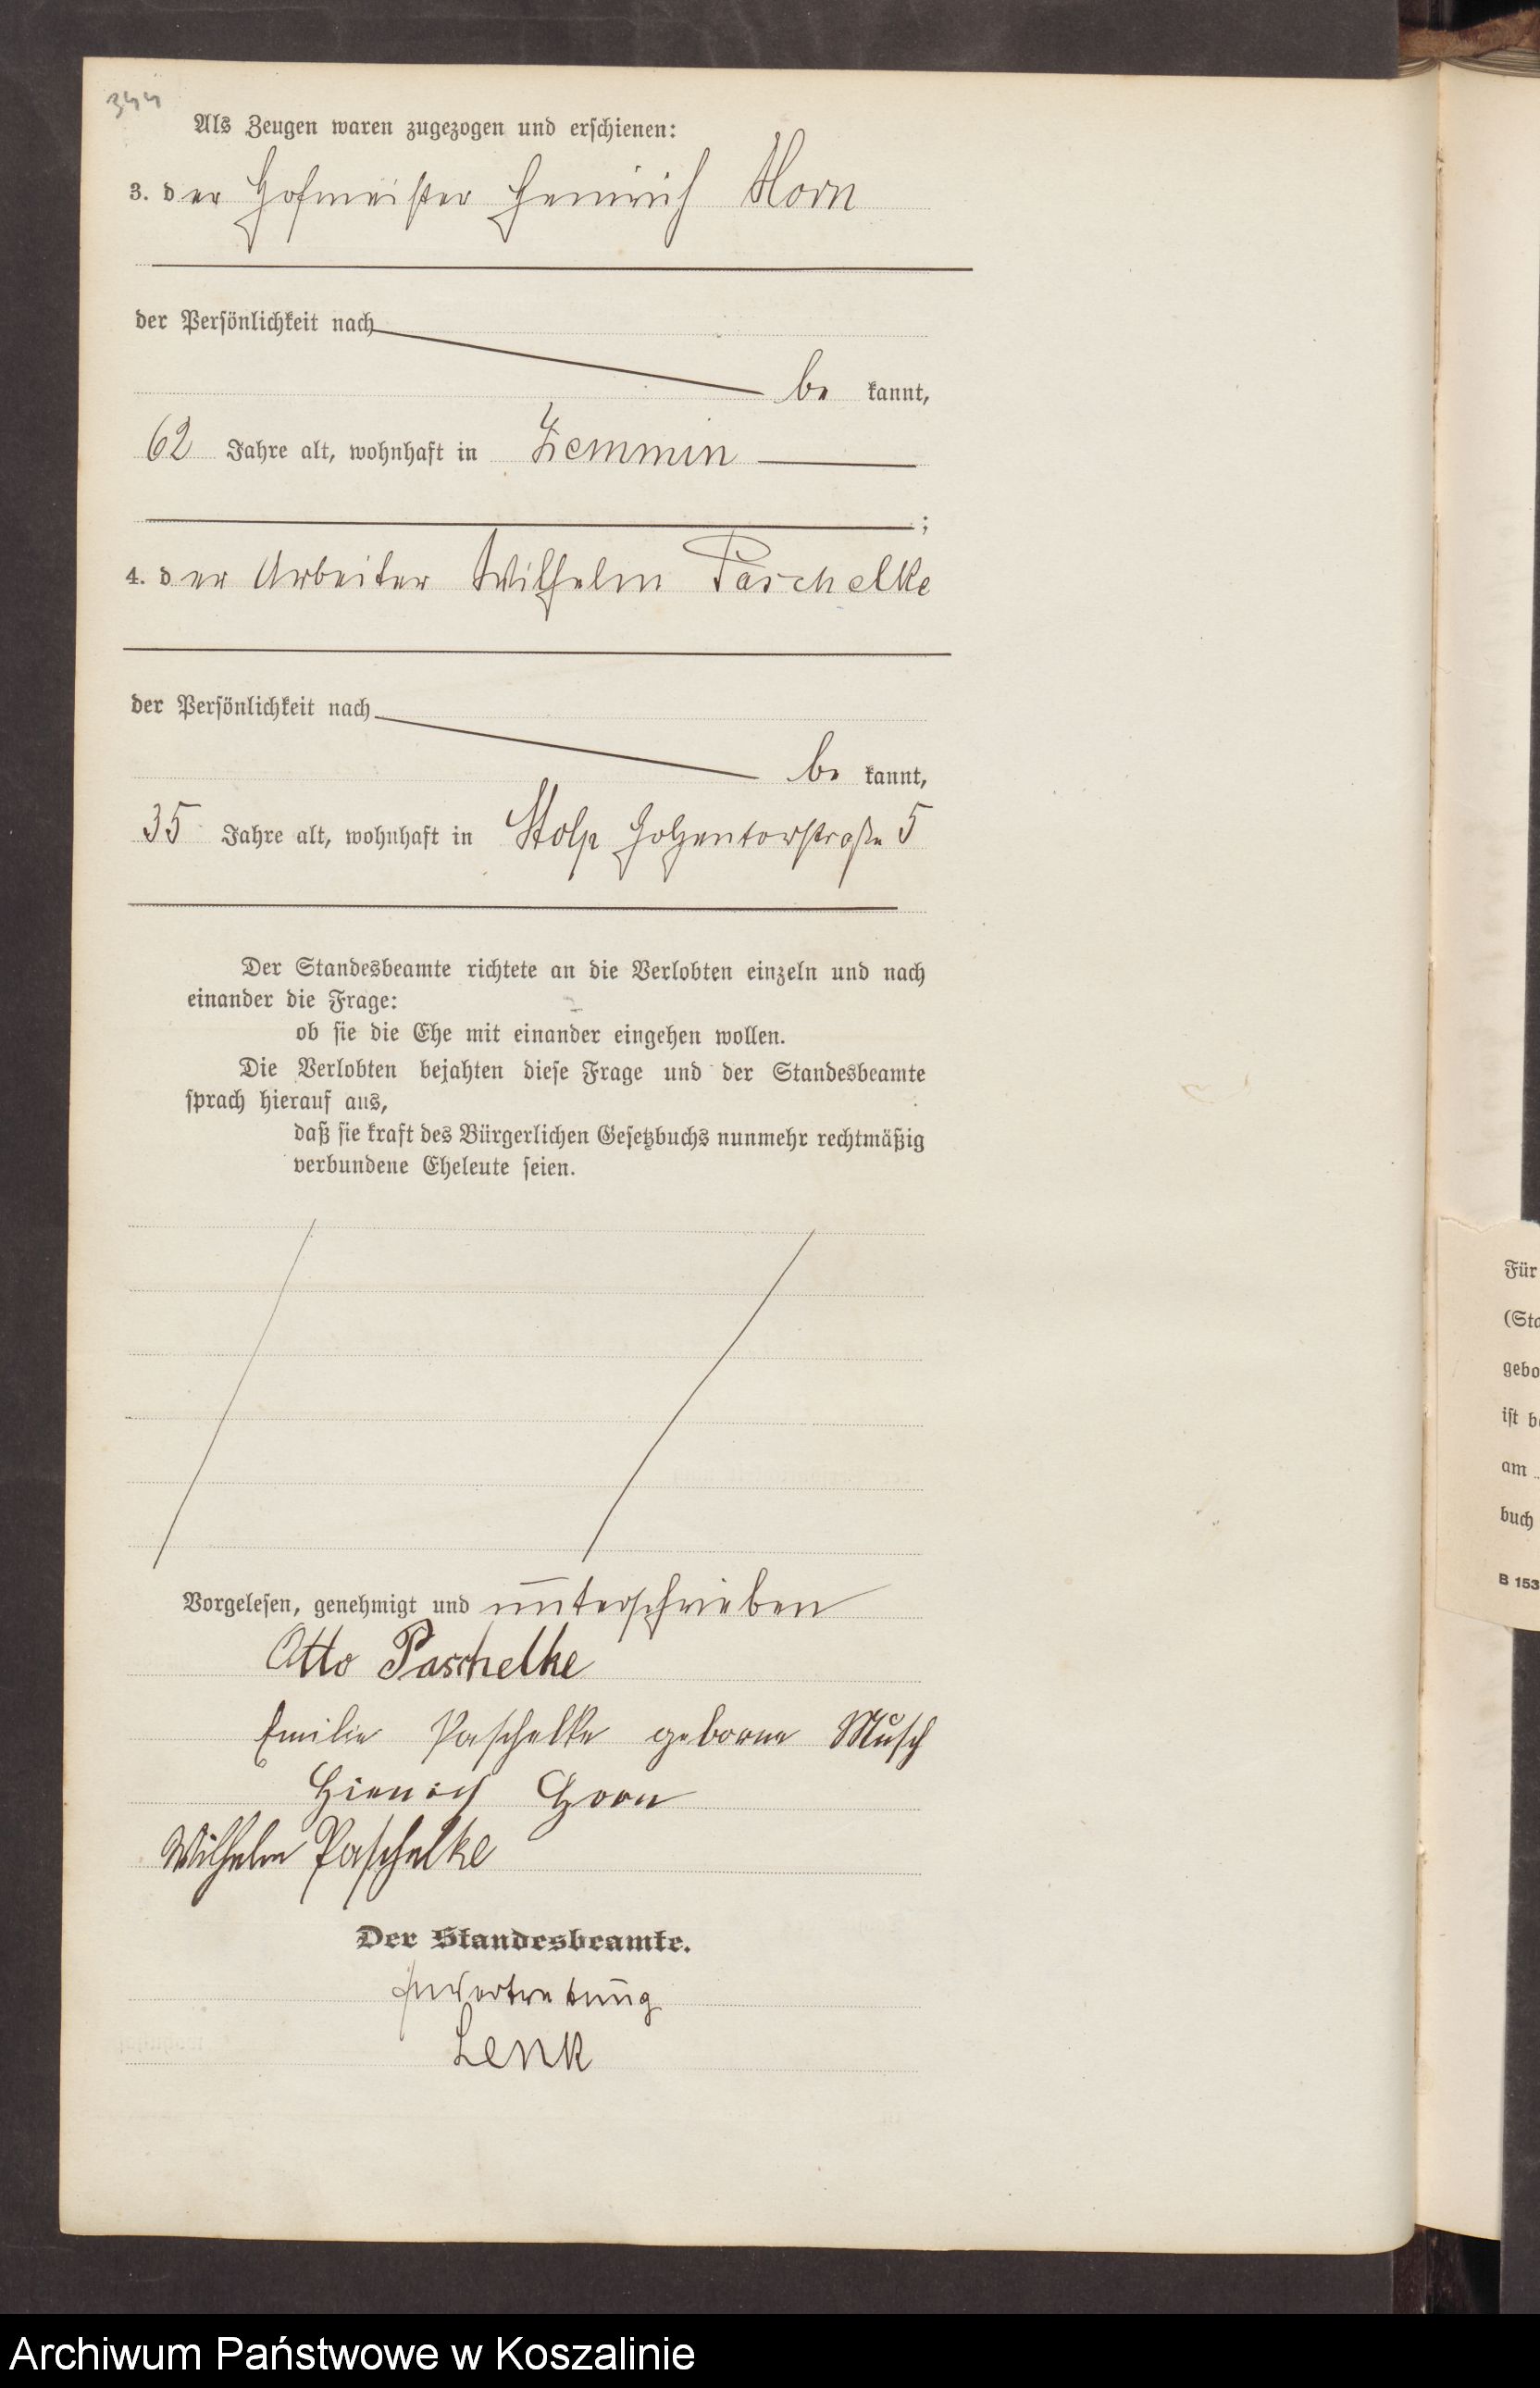 344
Als Zeugen waren zugezogen und erschienen:
3. der Hofmeister Heinrich Horn
der Persönlichkeit nach
be kannt,
62 Jahre alt, wohnhaft in Zemmin
;
4. der Arbeiter Wilhelm Paschelke
der Persönlichkeit nach
be kannt,
35 Jahre alt, wohnhaft in Stolp Holzentorstraße 5
Der Standesbeamte richtete an die Verlobten einzeln und nach
einander die Frage:
ob sie die Ehe mit einander eingehen wollen.
Die Verlobten bejahten diese Frage und der Standesbeamte
sprach hierauf aus,
daß sie kraft des Bürgerlichen Gesetzbuchs nunmehr rechtmäßig
verbundene Eheleute seien.
Vorgelesen, genehmigt und unterschrieben
Otto Paschelke
Emilie Paschelke geborne Musch
Hienrich Horn
Wilhelm Paschelke
Der Standesbeamte.
In Vertretung
Lenk
Für
(Sta
gebo
ist b
am
buch
B 153
Archiwum Państwowe w Koszalinie